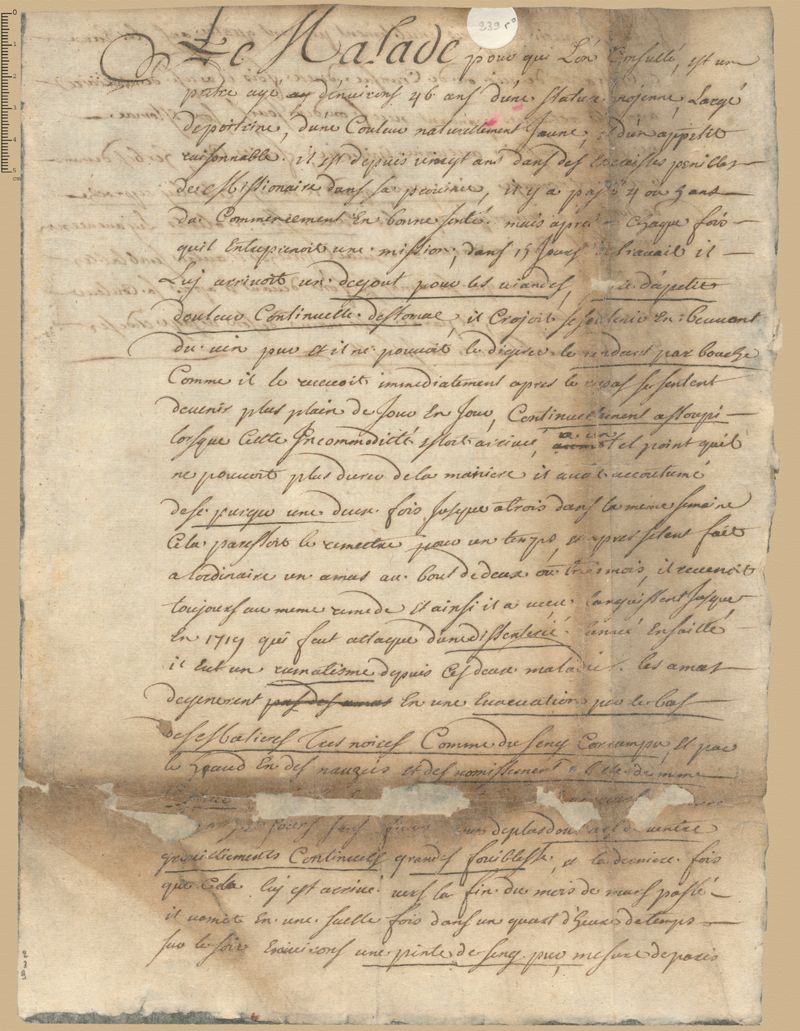 239 r°
Le Malade pour qui L'on Consulte, est un
pretre agé ay d'environs 46 ans d'une stature moyenne, Large
de poitrine, d'une Couleur naturellement Jaune, et d'un appetit
raisonnable. il est depuis vingt ans dans des penibles
de Missionaire dans la province, il y a passé 4 ou 5 ans
du Commencement En bonne santé. mais apres chaque fois
quil Entreprenoit une mission, dans 15 Jours de travail il
Luy arrivoit un degout pour les viandes, d'apetit
douleur Continuelle destomac, il Croyoit se soutenir En beuvant
du vin pur et il ne pouvoit le digerer le rendant par bouche
Comme il le recevoit immediatement apres le repas se sentent
devenir plus plain de Jour En Jour, Continuellement assoupi
lorsque Cette Incommodité estoit arrivée, a un tel point quil
ne pouvoit plus durer de la maniere il avoit accoutumé
de se purger une deux fois Jusque a trois dans la même semaine
Cela paressoit le remettre pour un temps, et apres setent fait
a lordinaire un amas au bout de deux ou trois mois, il revenoit
toujours au meme remede et ainsi il a vecu languissent Jusque
En 1719 qui feut attaqué d'une dissenterie. lannée Ensuitte
il Eut un rumatisme depuis Ces deux maladies. les amas
degenerent pas des amas En une Evacuation par le bas
des Matieres Tres noires Comme du seng Corrompu, et par
le haud En des nauzeés et des vomissement de meme
deplus douleurs de ventre
grouillements Continuels grandes foiblesse, et la derniere fois
que Cela luy est arrivé vers la fin du mois de mars passé
il vomit En une seulle fois dans un quart d'heure de temps
sur le soir Environs une pinte de seng pur, mesure de paris
239